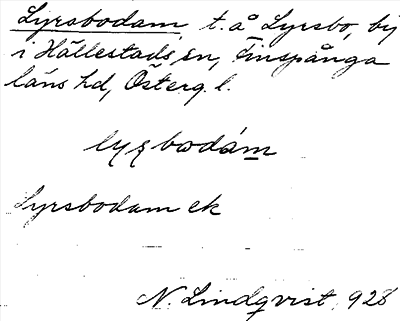 Lyrsbodam, t. å Lyrsbo, by
i Hällestads sn, Finspånga
läns hd, Österg. l.
lyʂbodám
Lyrsbodam ek
N. Lindqvist, 928